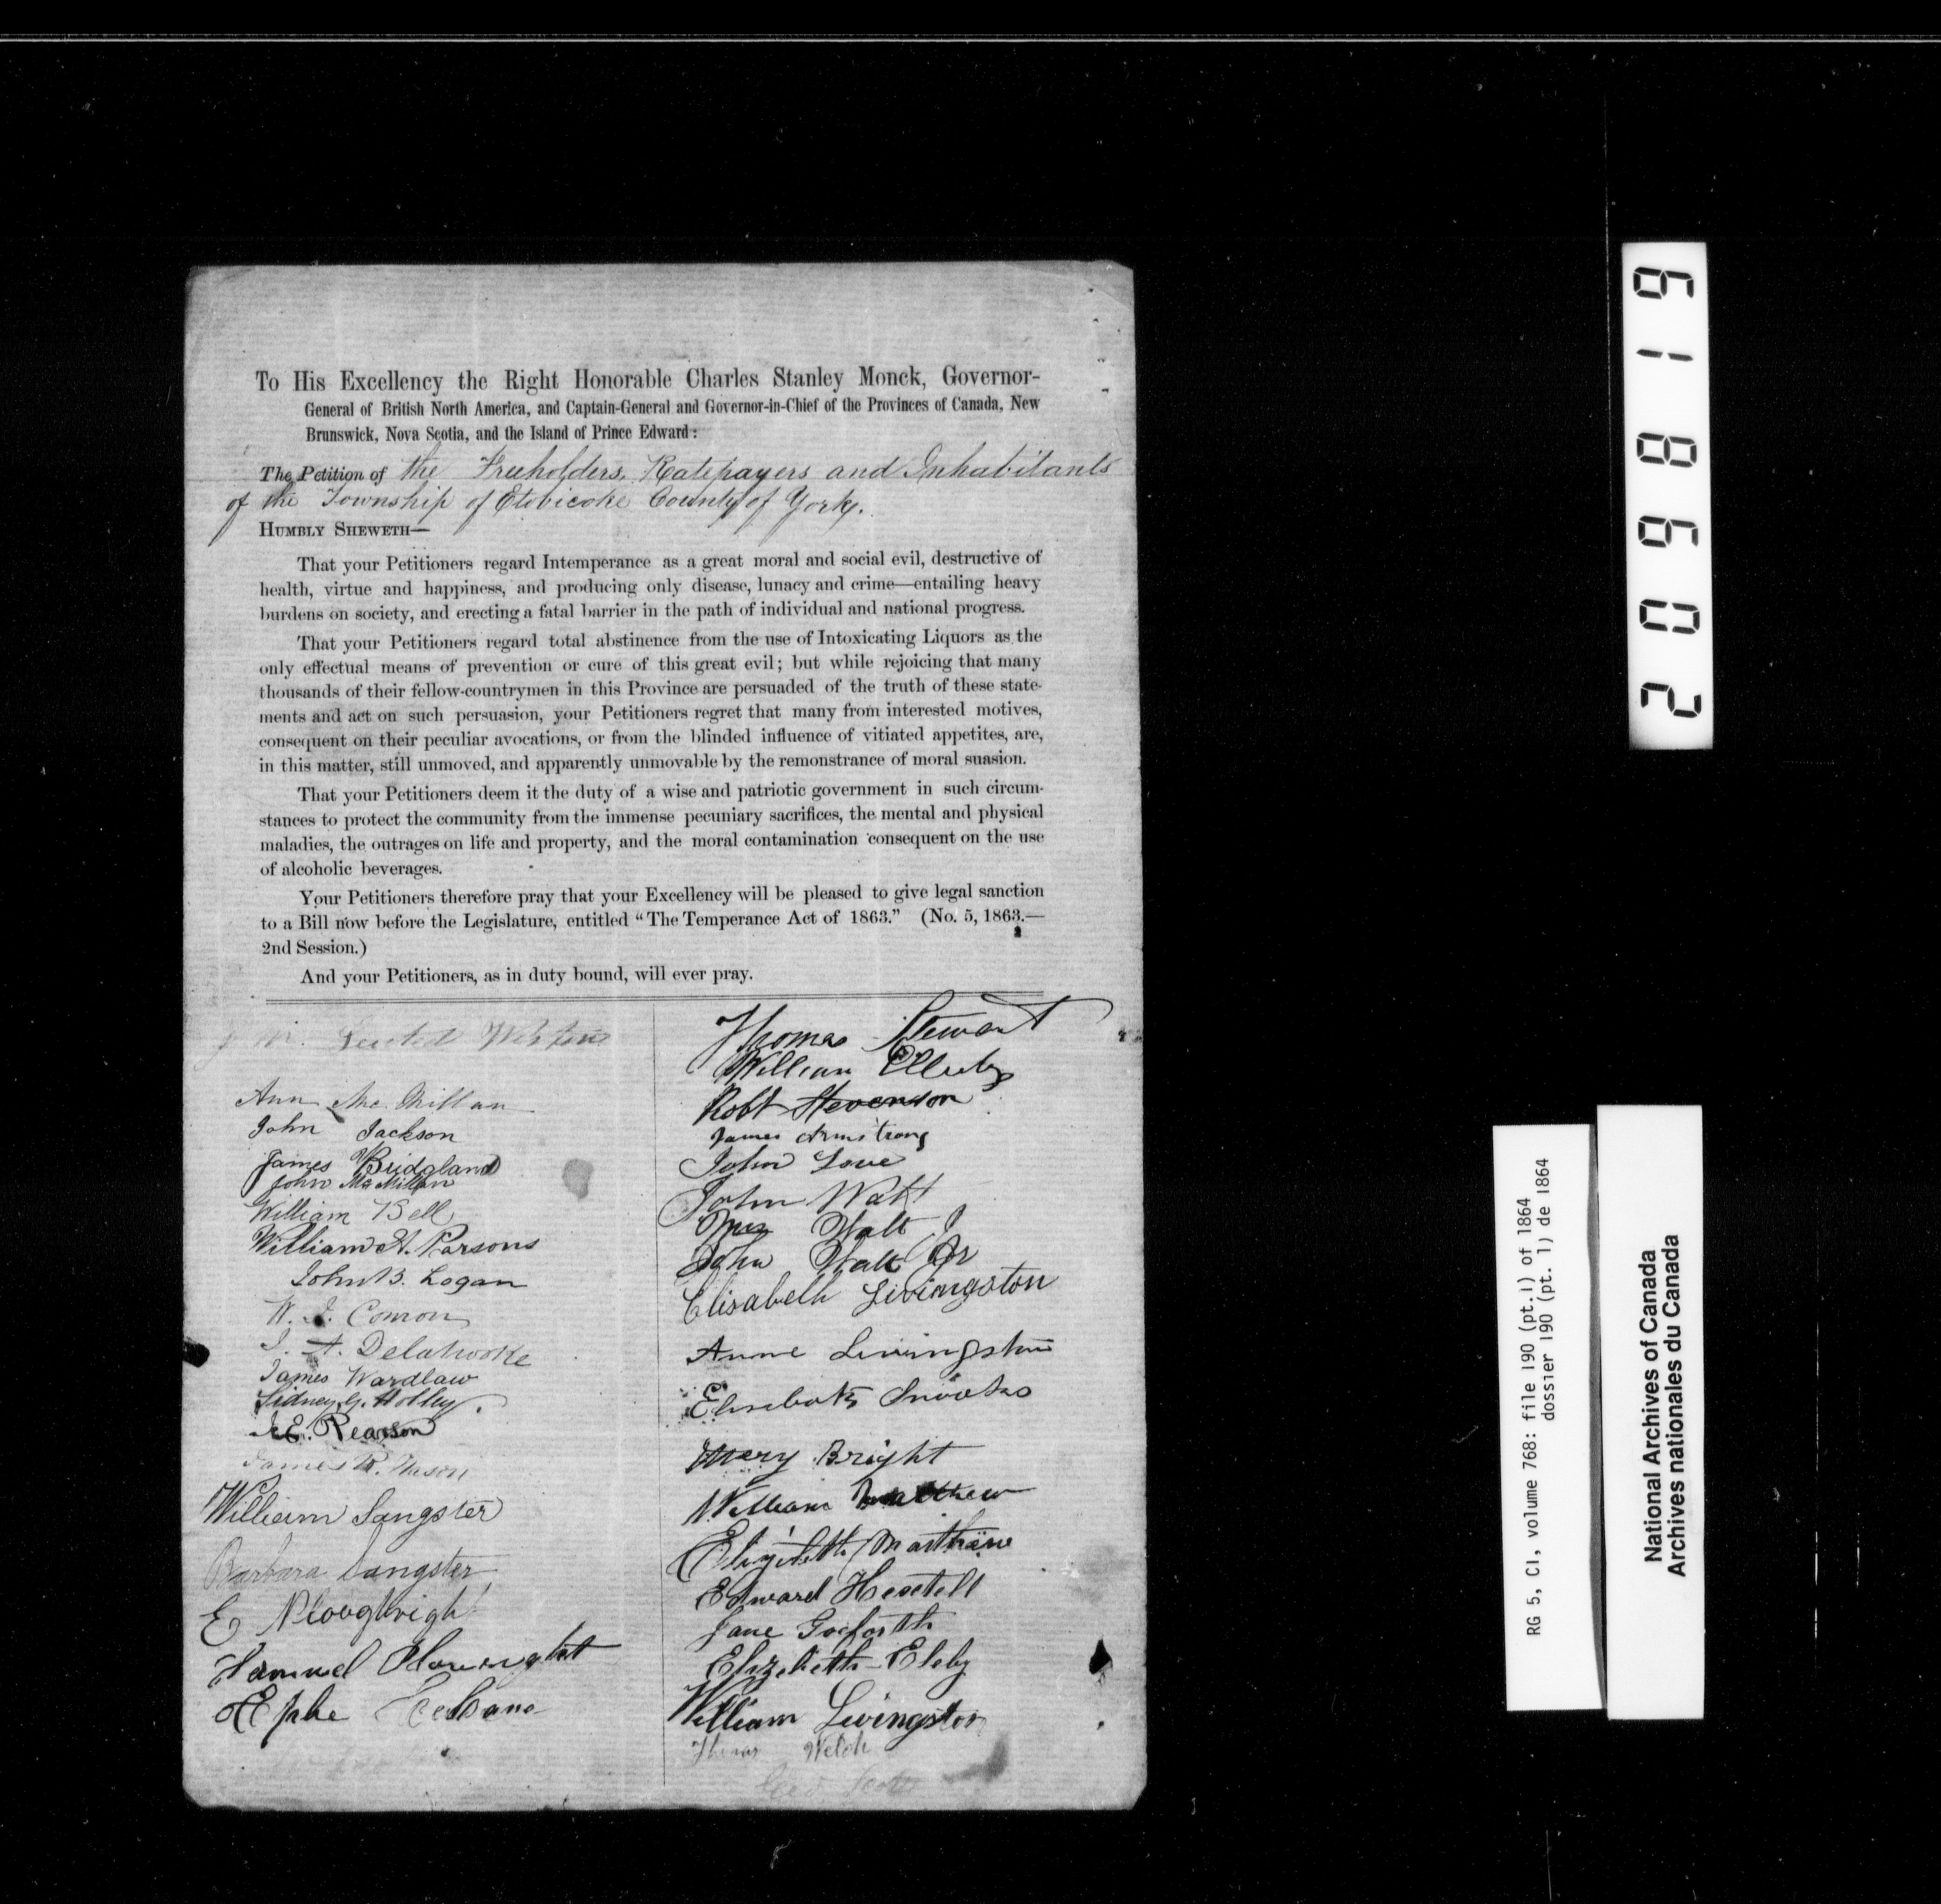 To His Excellency the Right Honorable Charles Stanley Monck, Governor-
General of British North America, and Captain-General and Governor-in-Chief of the Provinces of Canada, New
Brunswick, Nova Scotia, and the Island of Prince Edward:
The Petition of the Freeholders, Ratepayers and Inhabitants
of the Township of Etobicoke County of York.
HUMBLY SHEWETH—
That your Petitioners regard Intemperance as a great moral and social evil, destructive of
health, virtue and happiness, and producing only disease, lunacy and crime—entailing heavy
burdens on society, and erecting a fatal barrier in the path of individual and national progress.
That your Petitioners regard total abstinence from the use of Intoxicating Liquors as the
only effectual means of prevention or cure of this great evil; but while rejoicing that many
thousands of their fellow-countrymen in this Province are persuaded of the truth of these state-
ments and act on such persuasion, your Petitioners regret that many from interested motives,
consequent on their peculiar avocations, or from the blinded influence of vitiated appetites, are,
in this matter, still unmoved, and apparently unmovable by the remonstrance of moral suasion.
That your Petitioners deem it the duty of a wise and patriotic government in such circum-
stances to protect the community from the immense pecuniary sacrifices, the mental and physical
maladies, the outrages on life and property, and the moral contamination consequent on the use
of alcoholic beverages.
Your Petitioners therefore pray that your Excellency will be pleased to give legal sanction
to a Bill now before the Legislature, entitled "The Temperance Act of 1863." (No. 5, 1863.—
2nd Session.)
And your Petitioners, as in duty bound, will ever pray.
Ann McMillan
John Jackson
James Bridgland
John McMillan
William Bell
William H. Parsons
John B. Logan
W. J. Conron
James Wardlaw
Sidney G. Holley.
E. Pearson
James R. Mason
William Sangster
Barbara Sangster
E Ploughright
Samuel
Ephe
Thomas Stewart
William Ellerby
Robt Stevenson
James Armstrong
John Love
John Watt
Mrs Watt
John Watt Jr
Elisabeth Livingston
Anne Livingston
Mary Bright
William Matthew
Elizabeth Matthew
Edward
Jane Goforth
Elizabeth
William Livingston
Welch
209819
RG 5, C1, volume 768: file 190 (pt.1) of 1864
dossier 190 (pt. 1) de 1864
National Archives of Canada
Archives nationales du Canada